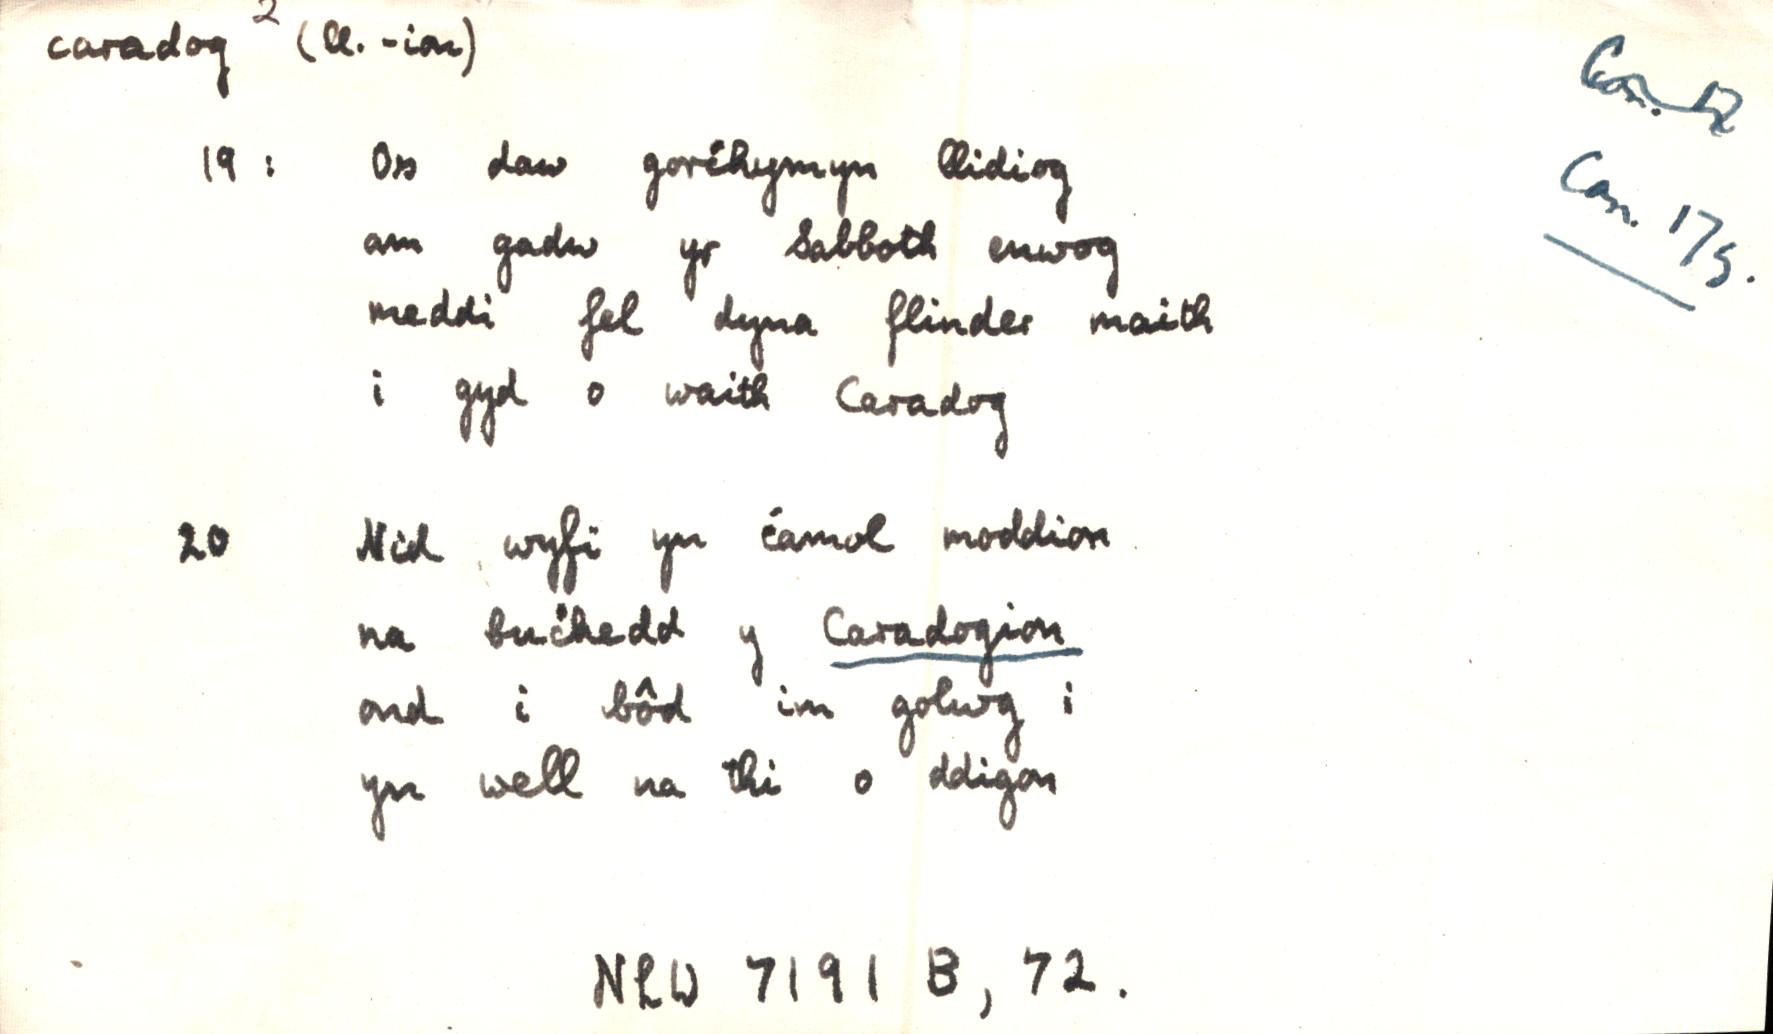 caradog² (ll. -ion)
Can. 17g.
19: Os daw gorchymyn llidiog
am gadw yr Sabboth enwog
meddi fel dyna flinder maith
i gyd o waith Caradog
20 Nid wyfi yn camol moddion
na buchedd y Caradogion
ond i bôd im golwg i
yn well na thi o ddigon
NLW 7191 B, 72.